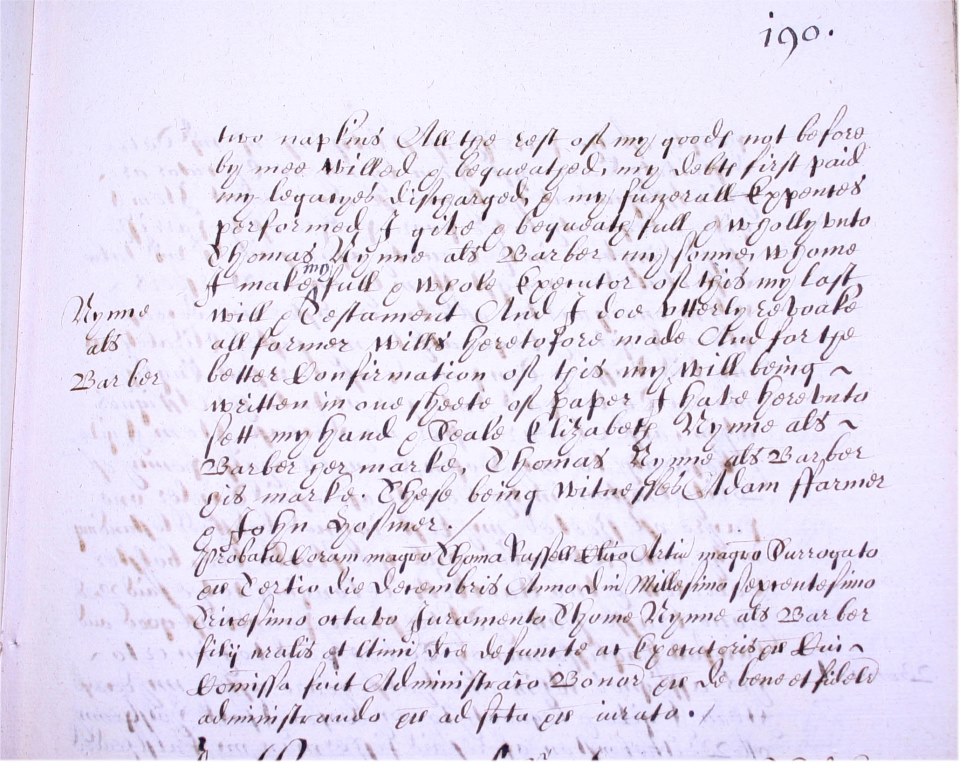 190.
two napkins All the rest of my goods not before
by mee willed & bequeathed, my debts first paid
my legacyes discharged, & my funerall Expences
performed, I give & bequeath full & wholly unto
Thomas Nynne als Barber my sonne, whome
my
I make full & whole Executor of this my last
Nynne
als
Barber
will & Testament And I doe utterly revoake
all former wills heretofore made And for the
better Confirmation of this my will being ~
written in one sheete of paper I have hereunto
sett my hand & Seale Elizabeth Nynne als ~
Barber her marke, Thomas Nynne als Barber
his marke, These being witnesses Adam ffarmer
& John
Probatu Coram magro Thoma Russell Clico Artiu magro Surrogato
&c Tertio die decembris Anno dni Millesimo sexcentesimo
Tricesimo octavo Juramento Thome Nynne als Barber
filij nralis et ltimi dce defuncte ac Executoris &c Cui ~
Comissa fuit Administraco Bonor &c de bene et fidelr
administrando &c ad scta &c iurato.